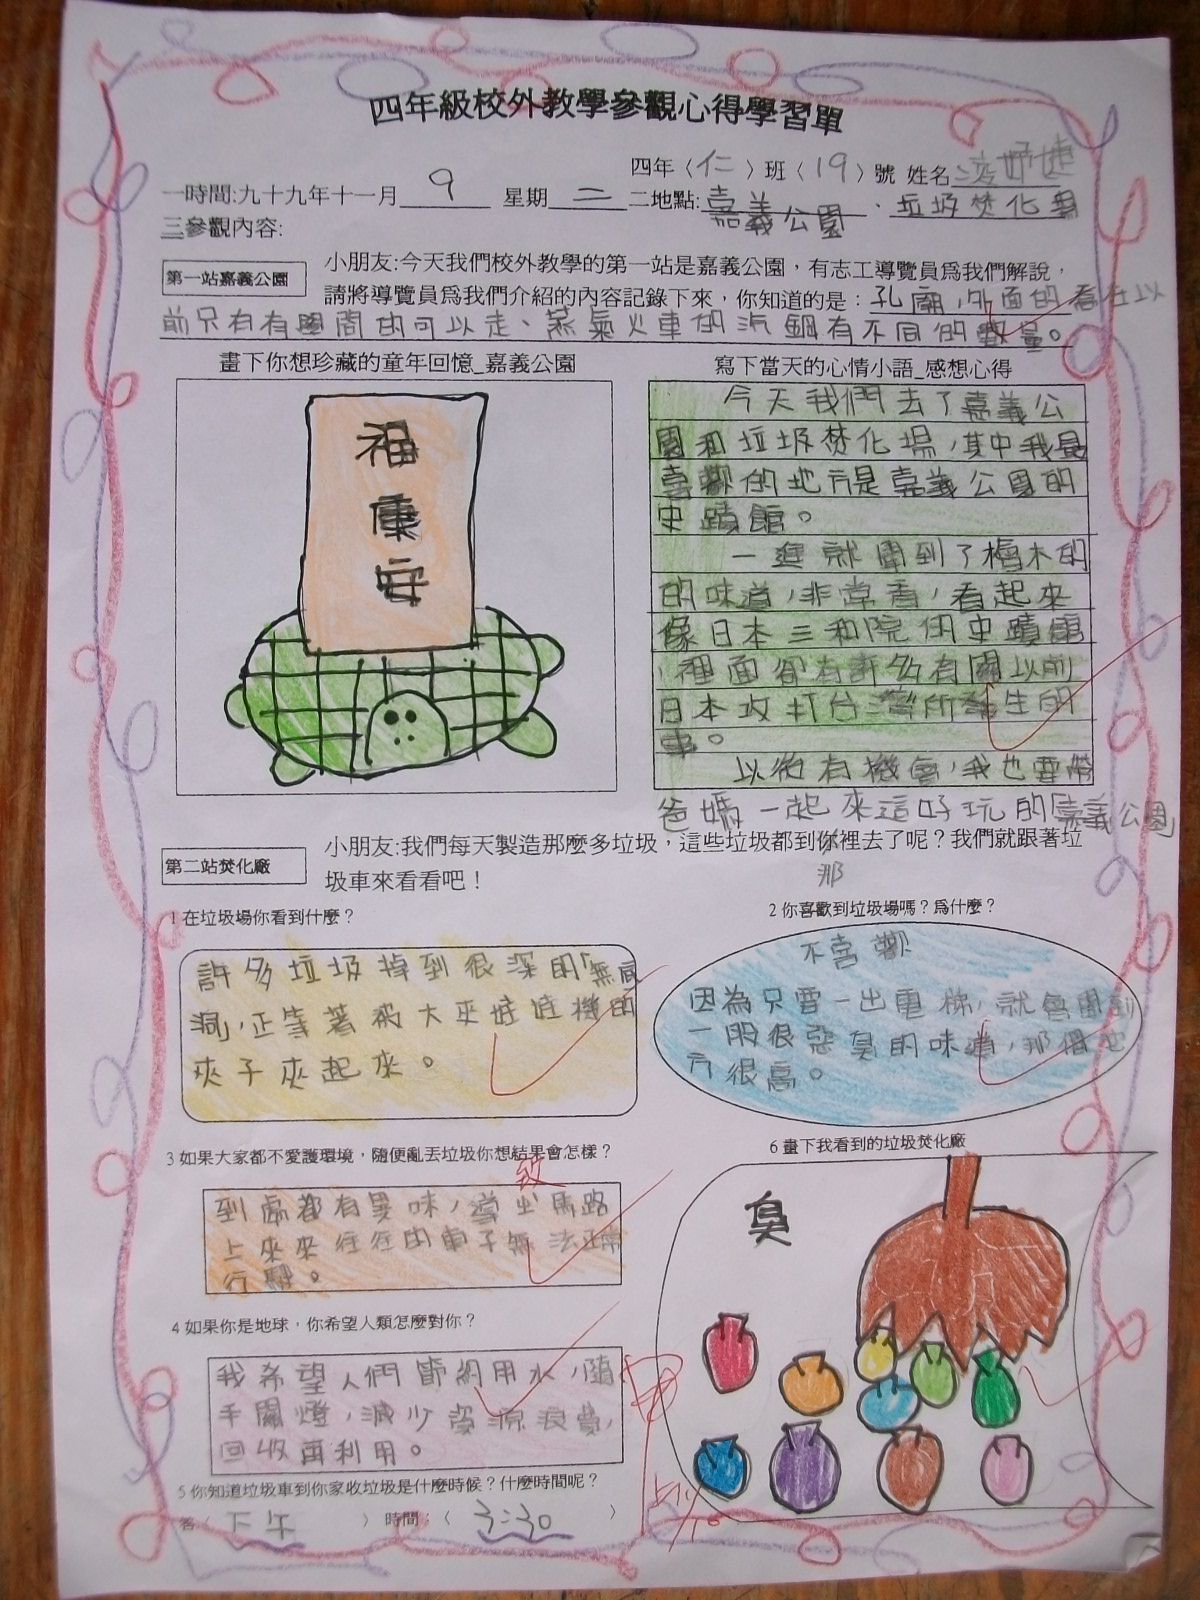 四年級校外教學參觀心得學習單
四年〈仁〉班〈19〉號 姓名
一時間:九十九年十一月 9 星期 二 二地點:嘉義公園、垃圾焚化場
三參觀內容:
第一站嘉義公園
小朋友:今天我們校外教學的第一站是嘉義公園，有志工導覽員為我們解說，
請將導覽員為我們介紹的內容記錄下來，你知道的是：孔廟，外面的看在以
前只有有的可以走、蒸氣火車的汽鍋有不同的數量。
畫下你想珍藏的童年回憶_嘉義公園
福康安
寫下當天的心情小語_感想心得
今天我們去了嘉義公
園和垃圾焚化場，其中我最
喜歡的地方是嘉義公園的
史蹟館。
一進就聞到了檜木的
的味道，非常香，看起來
像日本三和院的史蹟館
，裡面卻有許多有關以前
日本攻打台灣所發生的
事。
以後有機會，我也要帶
爸媽一起來這好玩的「嘉義公園
第二站焚化廠
小朋友:我們每天製造那麼多垃圾，這些垃圾都到你裡去了呢？我們就跟著垃
那
圾車來看看吧！
1 在垃圾場你看到什麼？
許多垃圾掉到很深的「無底
洞」，正等著被大夾娃娃機的
夾子夾起來。
2 你喜歡到垃圾場嗎？為什麼？
不喜歡
因為只要一出電梯，就會聞到
一股很惡臭的味道，那個地
方很高。
3 如果大家都不愛護環境，隨便亂丟垃圾你想結果會怎樣？
致
到處都有異味，導出馬路
上來來往往的車子無法正常
行駛。
4 如果你是地球，你希望人類怎麼對你？
我希望人們節約用水，隨
手關燈，減少資源浪費，
回收再利用。
5 你知道垃圾車到你家收垃圾是什麼時候？什麼時間呢？
答〈下午〉 時間：〈3:30〉
6 畫下我看到的垃圾焚化廠
臭